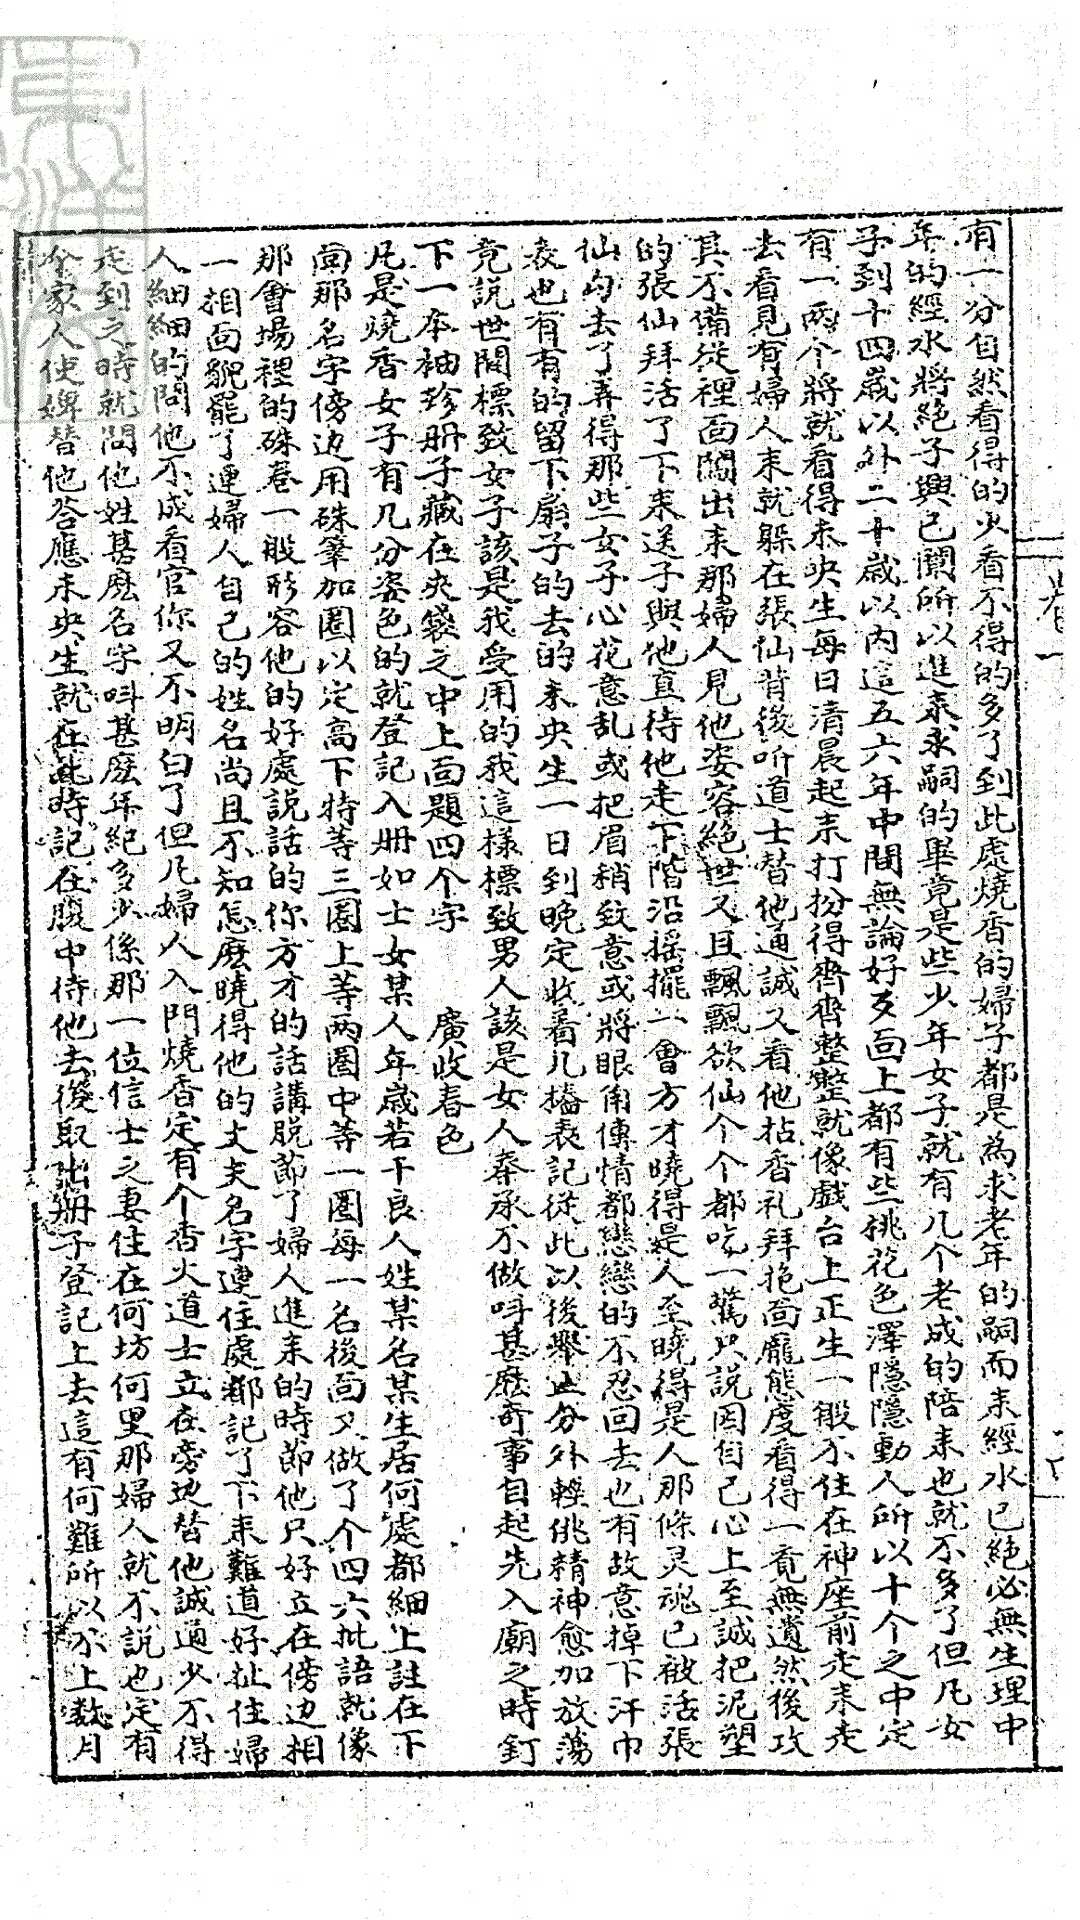 有一分自然看得的少看不得的多了到此處燒香的婦子都是為求老年的嗣而來經水已絕必無生理中
年的經水將絕子興已闌所以進來求嗣的畢竟是些少年女子就有几个老成的陪来也就不多了但凡女
子到十四歲以外二十歲以内這五六年中間無論好歹面上都有些桃花色澤隱隱動人所以十个之中定
有一兩个將就看得未央生每日清晨起来打扮得齊齊整整就像戲台上正生一般不住在神座前走来走
去看見有婦人来就躲在張仙背後听道士替他通誠又看他拈香礼拜抱面龐態度看得一竟無遺然後攻
其不備從裡面闖出来那婦人見他姿容絕世又且飄飄欲仙个个都吃一驚只說因自己心上至誠把泥塑
的張仙拜活了下来送子與他直待他走下階沿搖擺一會方才曉得是人至曉得是人那條灵魂已被活張
仙勾去了弄得那些女子心花意乱或把眉稍致意或將眼角傳情都戀戀的不忍回去也有故意掉下汗巾
表也有有的留下扇子的去的未央生一日到晚定收着几樁表記從此以後舉止分外輕佻精神愈加放蕩
竟說世間標致女子該是我受用的我這樣標致男人該是女人奉承不做呌甚麽奇事自起先入廟之時釘
下一本袖珍册子藏在夾袋之中上面題四个字　廣收春色
凡是燒香女子有几分姿色的就登記入册如士女某人年歲若干良人姓某名某生居何處都細上註在下
面那名字傍边用硃筆加圈以定高下特等三圈上等两圈中等一圈每一名後面又做了个四六批語就像
那會場裡的硃卷一般形容他的好處說話的你方才的話講脫節了婦人進来的時節他只好立在傍边相
一相面貌罷了連婦人自己的姓名尚且不知怎麽曉得他的丈夫名字連住處都記了下来難道好扯住婦
人細細的問他不成看官你又不明白了但凡婦人入門燒香定有个香火道士立在旁边替他誠通少不得
走到之時就問他姓甚麽名字呌甚麽年紀多少係那一位信士之妻住在何坊何里那婦人就不說也定有
个家人使婢替他答應未央生就在此時記在腹中待他去後取出册子登記上去這有何難所以不上数月
卷一